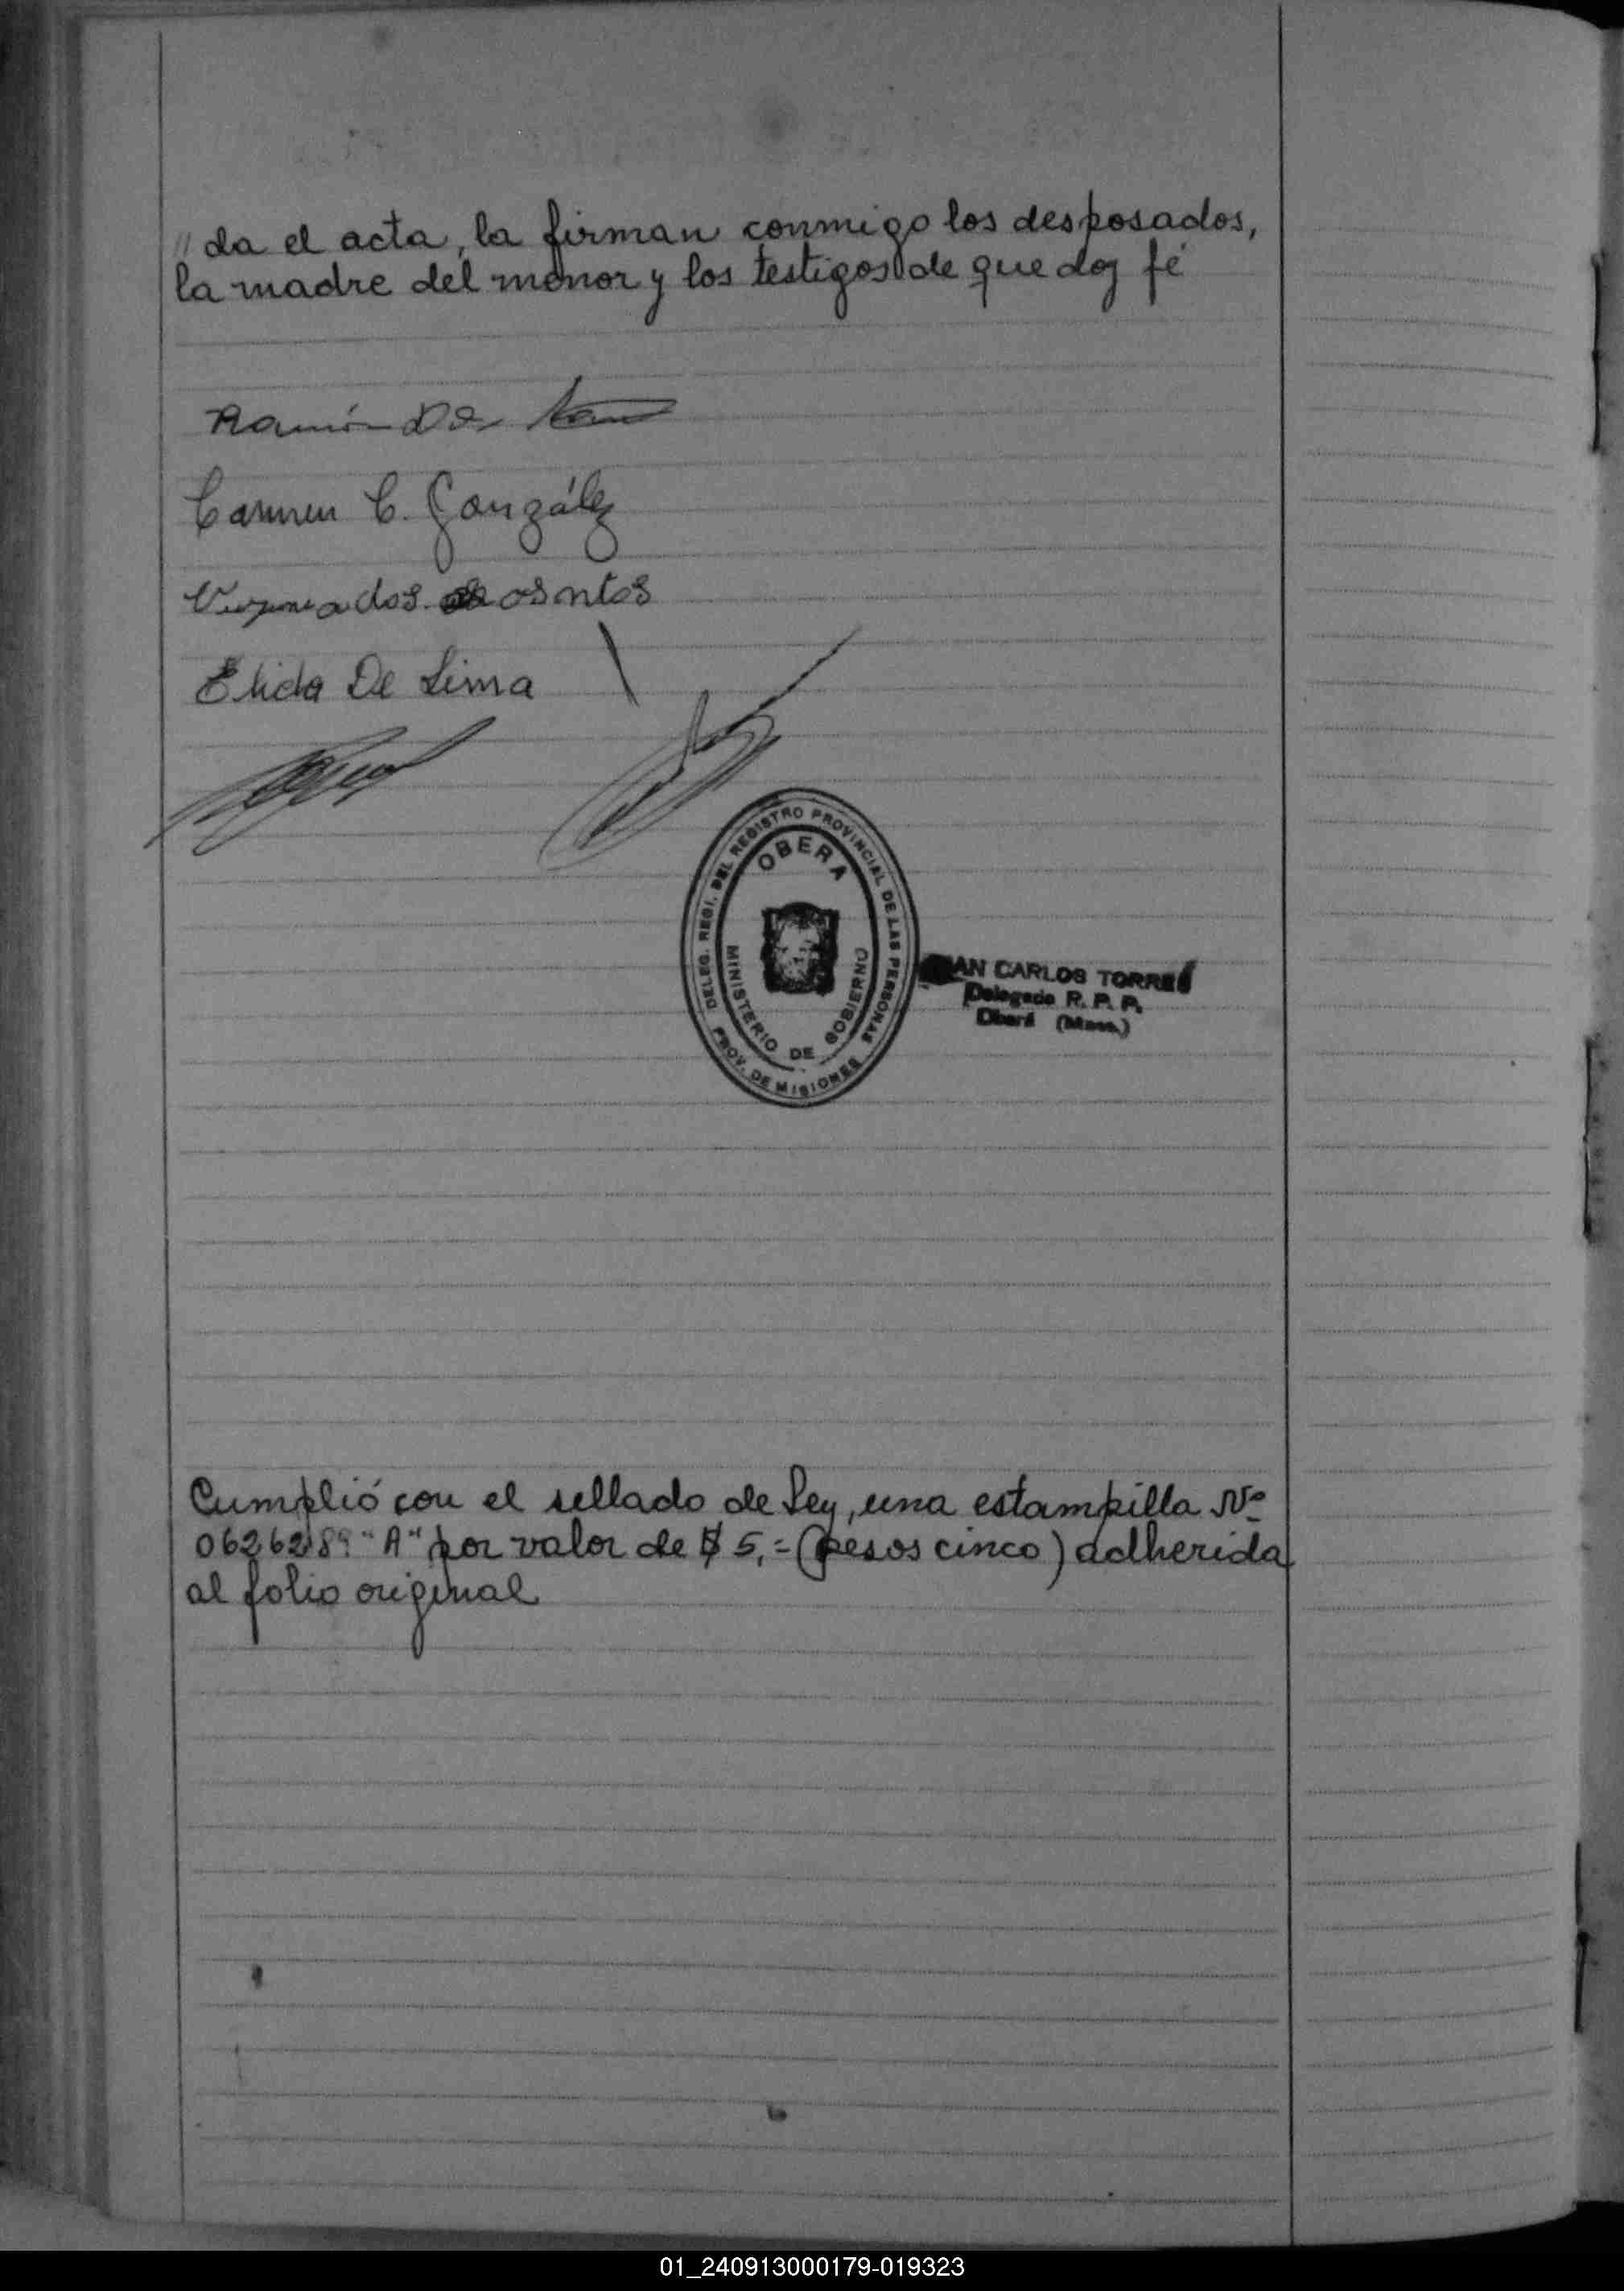 " da el acta, la firman conmigo los desposados,
la madre del menor y los testigos de que doy fé
Ramón Da
Carmen C. González
dos osntos
Elida De Lima
DELEG. REGI. DEL REGISTRO PROVINCIAL DE LAS PERSONAS
OBERA
MINISTERIO DE GOBIERNO
PROV. DE MISIONES
AN CARLOS TORRES
Delegado R. P. P.
Oberá (Mnes.)
Cumplió con el sellado de Ley, una estampilla Nº
"A" por valor de $ 5,= (pesos cinco) adherida
al folio original
01_240913000179-019323